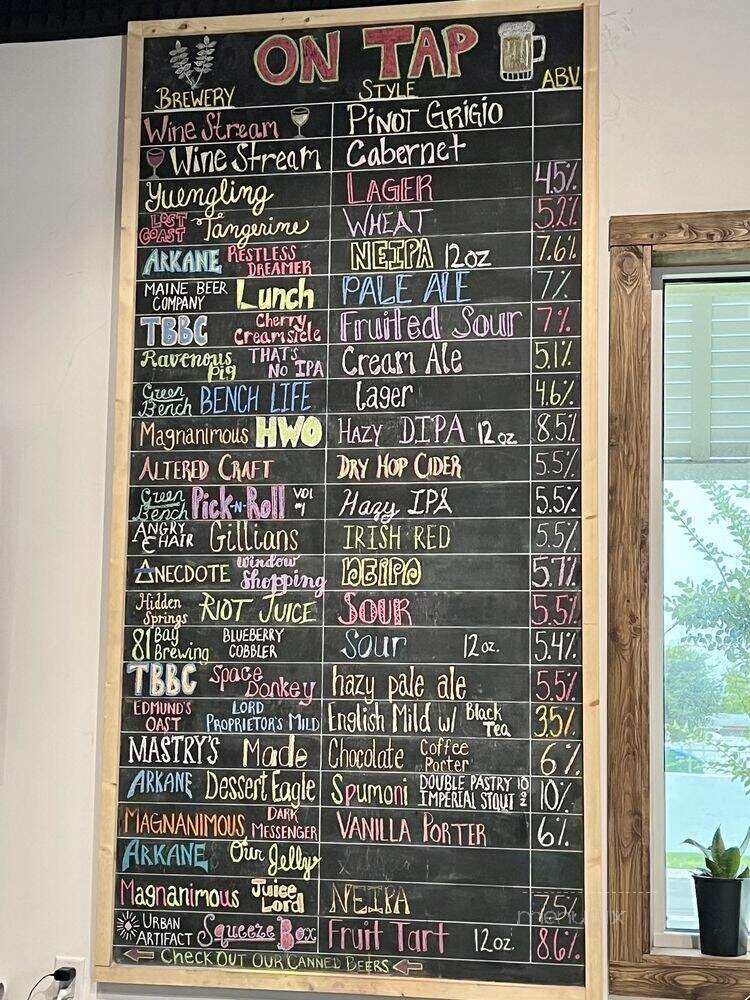 ON TAP
BREWERY STYLE ABV
Wine Stream PINOT GRIGIO
Wine Stream Cabernet
Yuengling LAGER 4.5%
LOST COAST Tangerine WHEAT 5.2%
ARKANE RESTLESS DREAMER NEIPA 12oz 7.6%
MAINE BEER COMPANY Lunch PALE ALE 7%
TBBC Cherry Creamsicle Fruited Sour 7%
Ravenous Pig THAT'S NO IPA Cream Ale 5.1%
Green Bench BENCH LIFE lager 4.6%
Magnanimous HWO HAZY DIPA 12oz 8.5%
ALTERED CRAFT DRY HOP CIDER 5.5%
Green Bench Pick-N-Roll VOL Hazy IPA 5.5%
ANGRY CHAIR Gillians IRISH RED 5.5%
ANECDOTE Window Shopping NEIPA 5.7%
Hidden Springs RIOT JUICE SOUR 5.5%
81 Bay Brewing BLUEBERRY COBBLER Sour 12oz. 5.4%
TBBC Space Donkey hazy pale ale 5.5%
EDMUND'S OAST LORD PROPRIETOR'S MILD English Mild w/ Black Tea 3.5%
MASTRY'S Made Chocolate Coffee Porter 6%
ARKANE Dessert Eagle Spumoni DOUBLE PASTRY IMPERIAL STOUT 10 oz 10%
MAGNANIMOUS DARK MESSENGER VANILLA PORTER 6%
ARKANE Our Jelly
Magnanimous Juice Lord NEIPA 7.5%
URBAN ARTIFACT Squeeze Box Fruit Tart 12oz. 8.6%
CHECK OUT OUR CANNED BEERS